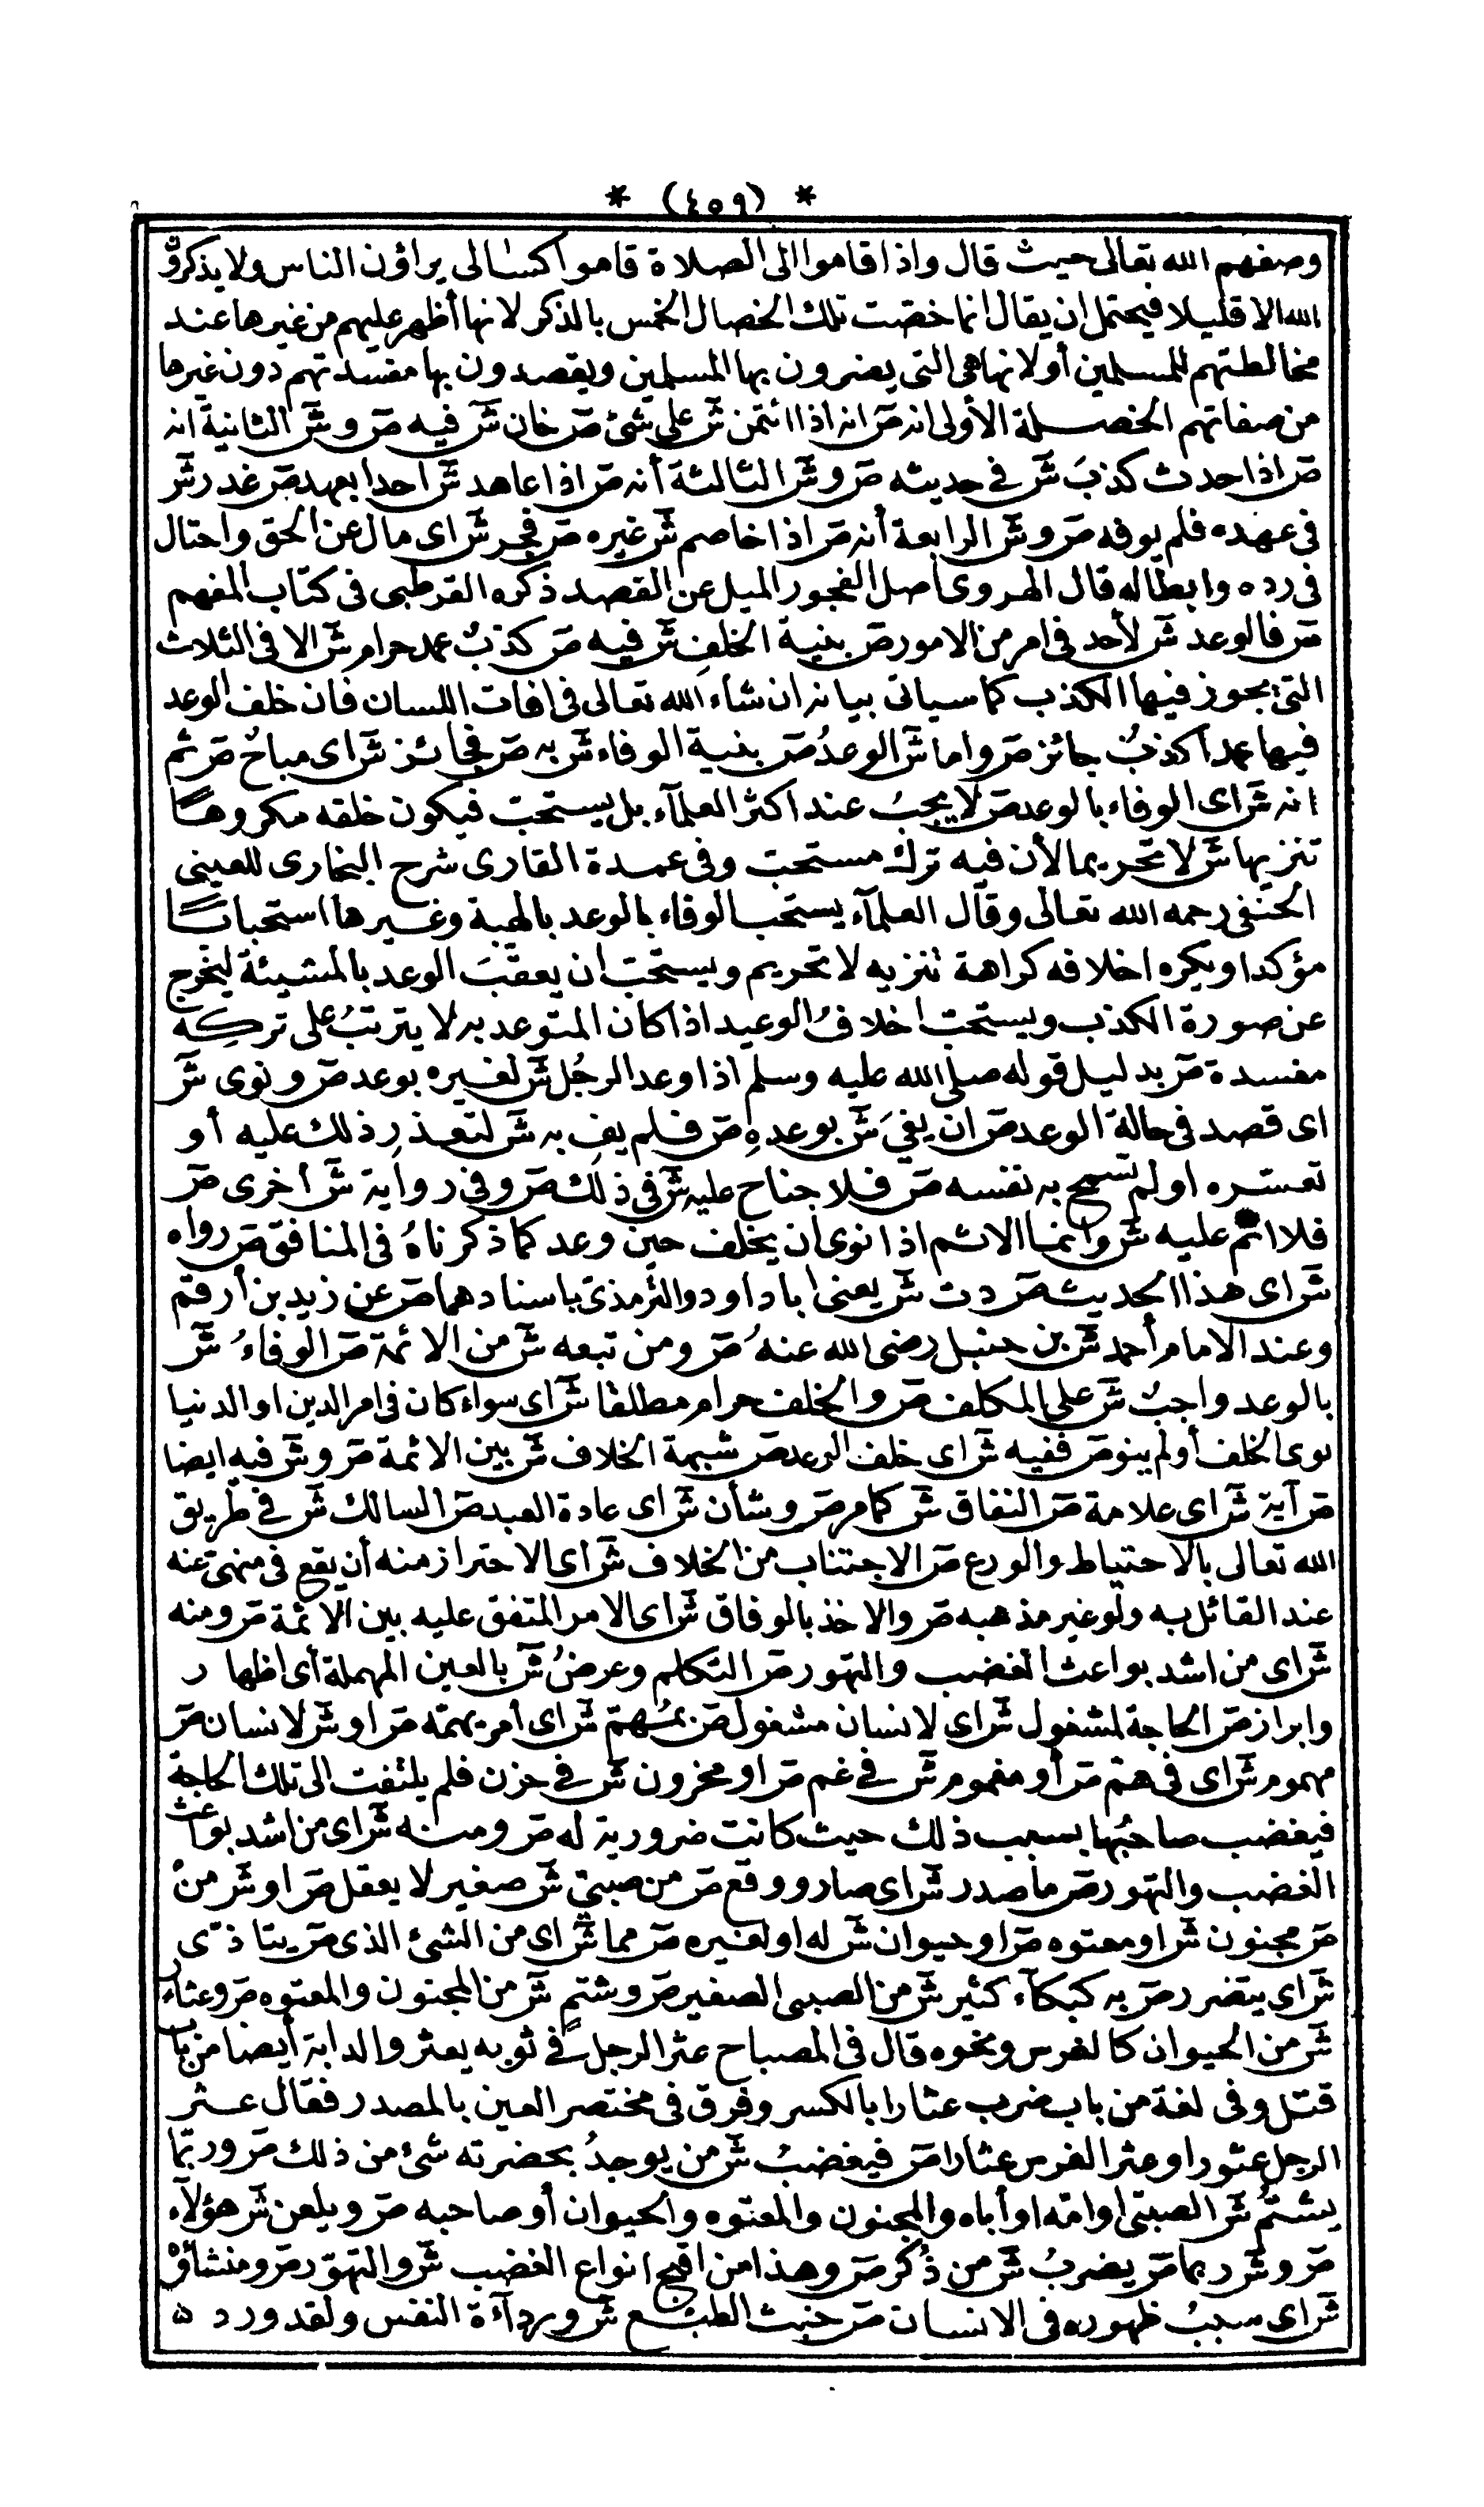 * (٤٥٩) *
وصفهم الله تعالى حيث قال واذا قاموا الى الصلاة قاموا كسالى يراؤن الناس ولا يذكرون
الله الا قليلا فيحتمل ان يقال انما خصت تلك الخصال الخمس بالذكر لانها أظهر عليهم من غيرها عند
مخالطتهم للمسلمين أو لانها هى التى يضرون بها المسلمين ويقصدون بها مفسدتهم دون غيرها
من صفاتهم الخصلة الأولى انه صَ انه اذا ائتمن شَ على شئ صَ خان شَ فيه صَ و شَ الثانية انه
صَ اذا حدث كذبَ شَ فى حديثه صَ و شَ الثالثة أنه صَ اذا عاهد شَ احدا بعهد صَ غدر شَ
فى عهده فلم يوفه صَ و شَ الرابعة أنه صَ اذا خاصم شَ غيره صَ فجر شَ اى مال عن الحق واحتال
فى رده وابطاله قال الهروى اصل الفجور الميل عن القصد ذكره القرطبى فى كتاب المفهم
صَ فالوعد شَ لأحد فى امر من الامور صَ بنية الخلفِ شَ فيه صَ كذبٌ عمد حرام شَ الا فى الثلاث
التى يجوز فيها الكذب كما سيأتى بيانه ان شاء الله تعالى فى افات اللسان فان خلف الوعد
فيها عمدا كذبٌ جائز صَ واما شَ الوعدُ صَ بنية الوفاء شَ به صَ فجائز شَ اى مباحٌ صَ ثم
انه شَ اى الوفاء بالوعد صَ لا يجبُ عند اكثر العلمآء بل يستحب فيكون خلفه مكروها
تنزيها شَ لا تحريما لأن فيه ترك مستحب وفى عمدة القارى شرح البخارى للعينى
الحنفى رحمه الله تعالى وقال العلمآء يستحب الوفاء بالوعد بالهبة وغيرها استحبابا
مؤكدا ويكره اخلافه كراهة تنزيه لا تحريم ويستحب ان يعقبَ الوعد بالمشيئة ليخرج
عن صورة الكذب ويستحب اخلافُ الوعيد اذا كان المتوعد به لا يترتبُ على تركِه
مفسدة صَ بدليل قوله صلى الله عليه وسلم اذا وعد الرجُل شَ لغيره بوعد صَ ونوى شَ
اى قصد فى حالة الوعد صَ ان يفىَ شَ بوعدهِ صَ فلم يفِ به شَ لتعذرِ ذلك عليه أو
تعسّره او لم تسمح به نفسه صَ فلا جناح عليه شَ فى ذلك صَ وفى رواية شَ اخرى صَ
فلا اثم عليه شَ وانما الاثم اذا نوى ان يخلف حين وعد كما ذكرناهُ فى المنافق صَ رواه
شَ اى هذا الحديث صَ دت شَ يعنى ابا داود والترمذىّ باسنادهما صَ عن زيد بن أرقم
وعند الامام أحمد شَ بن حنبل رضى الله عنهُ صَ ومن تبعه شَ من الائمة صَ الوفاءُ شَ
بالوعد واجبٌ شَ على المكلف صَ والخلف حرام مطلقا شَ اى سواء كان فى امر الدين او الدنيا
نوى الخلف أو لم ينو صَ ففيه شَ اى خلف الوعد صَ شبهة الخلاف شَ بين الائمة صَ و شَ فيه ايضا
صَ آية شَ اى علامة صَ النفاق شَ كما مر صَ وشأن شَ اى عادة العبد صَ السالك شَ فى طريق
الله تعالى بالاحتياط والورع صَ الاجتناب من الخلاف شَ اى الاحتراز منه أن يقع فى منهىّ عنه
عند القائل به ولو غير مذهبه صَ والاخذ بالوفاق شَ اى الامر المتفق عليه بين الائمة صَ ومنه
شَ اى من اشد بواعث الغضب والتهور صَ التكلم وعرضُ شَ بالعين المهملة أى اظهار
وابراز صَ الحاجة لمشغول شَ اى لانسان مشغول صَ بمُهمّ شَ اى أمر يهمه صَ او شَ لانسان صَ
مهموم شَ اى فى همّ صَ أو مغموم شَ فى غم صَ او محزون شَ فى حزن فلم يلتفت الى تلك الحاجة
فيغضب صاحبُها بسبب ذلك حيث كانت ضرورية له صَ ومنه شَ اى من اشد بواعث
الغضب والتهور صَ ما صدر شَ اى صار ووقع صَ من صبىّ شَ صغير لا يعقل صَ او شَ منْ
صَ مجنون شَ او معتوه صَ او حيوان شَ له او لغيره صَ مما شَ اى من الشئ الذى صَ يتاذّى
شَ اى يتضرر صَ به كبكآء كثير شَ من الصبى الصغير صَ وشتمٍ شَ من المجنون والمعتوه صَ وعثار
شَ من الحيوان كالفرس ونحوه قال فى المصباح عثر الرجل فى ثوبه يعثر والدابة أيضا من باب
قتل وفى لغة من باب ضرب عثارا بالكسر وفرق فى مختصر العين بالمصدر فقال عثر
الرجل عثورا وعثر الفرس عثارا صَ فيغضبُ شَ من يوجدُ بحضرته شئ من ذلك صَ وربما
يشتمُ شَ الصبىّ او امّه او أباه والمجنون والمعتوه والحيوان أو صاحبه صَ ويلعن شَ هؤلآء
صَ و شَ ربما صَ يضربُ شَ من ذُكر صَ وهذا من اقبح انواع الغضب شَ والتهوّر صَ ومنشأوْ
شَ اى سببُ ظهوره فى الانسان صَ خبث الطبع شَ ورداءة النفس ولقد ورد ه